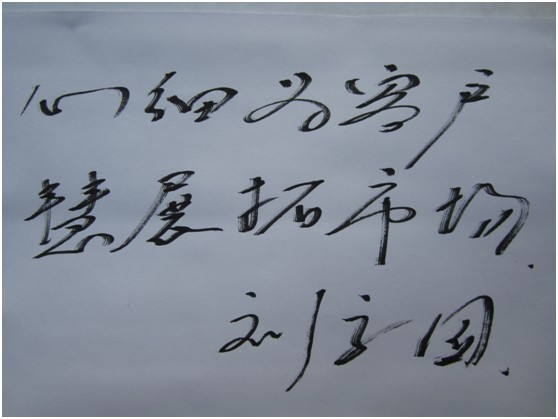 心细为客户
慧展拓市场.
刘立国.